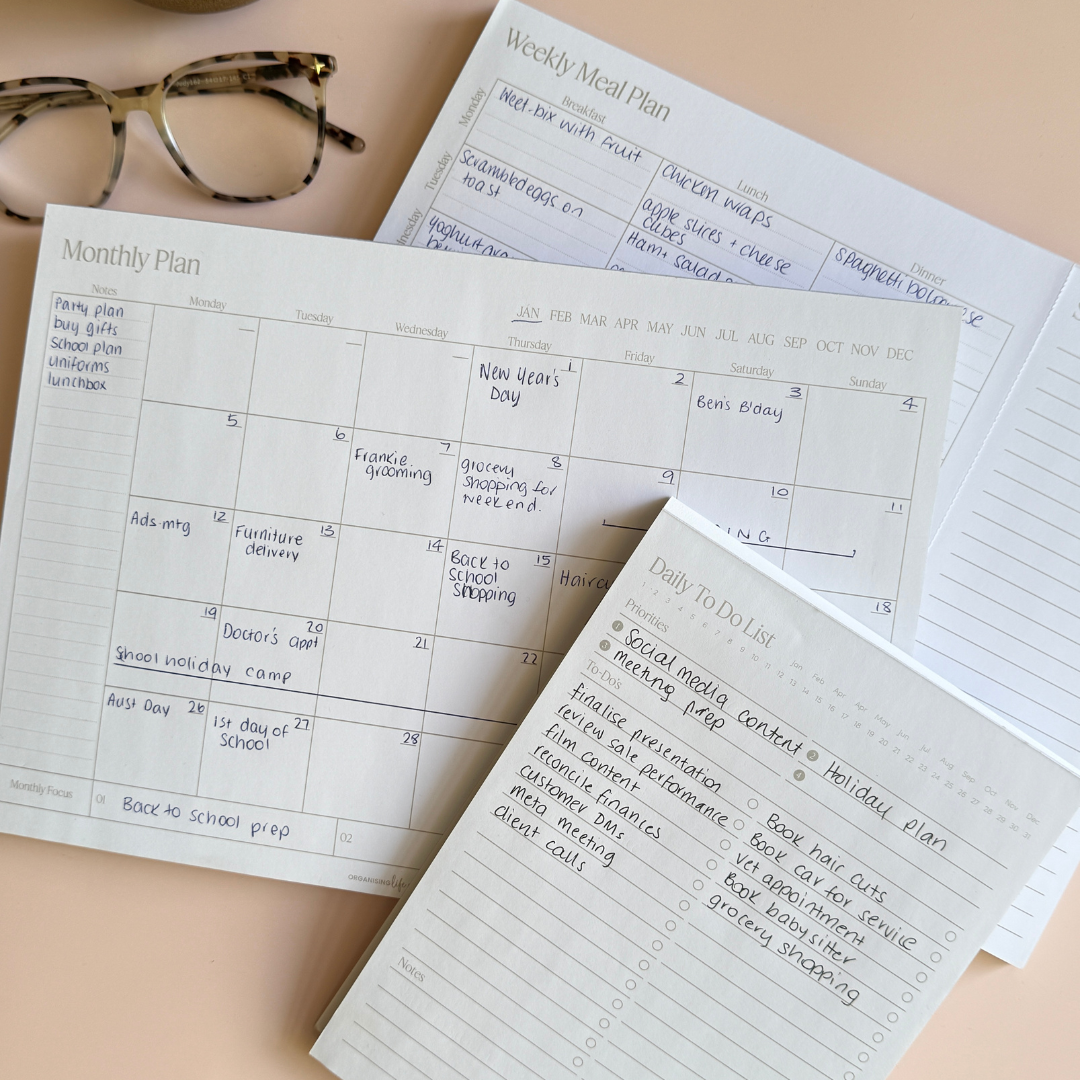 Weekly Meal Plan
Breakfast
Lunch
Dinner
Monday
Weet-bix with fruit
Chicken wraps
apple slices + cheese
cubes
Spaghetti
Tuesday
Scrambled eggs on
toast
Ham + salad
Monthly Plan
JAN FEB MAR APR MAY JUN JUL AUG SEP OCT NOV DEC
Notes
Party plan
buy gifts
School plan
uniforms
lunchbox
Monday
Tuesday
Wednesday
Thursday
Friday
Saturday
Sunday
1
New Year's
Day
2
3
Ben's B'day
4
5
6
7
Frankie
grooming
8
grocery
shopping for
weekend.
9
10
11
12
Ads mtg
13
Furniture
delivery
14
15
Back to
School
Shopping
18
19
20
Doctor's appt
21
22
School holiday camp
26
Aust Day
27
1st day of
School
28
Monthly Focus
01
Back to school prep
02
ORGANISING life
Daily To Do List
Jan Feb Apr Apr May Jun Jul Aug Sep Oct Nov Dec
1 2 3 4 5 6 7 8 9 10 11 12 13 14 15 16 17 18 19 20 21 22 23 24 25 26 27 28 29 30 31
Priorities
1 Social media content
2 Holiday plan
3 meeting prep
4
To-Do's
finalise presentation
review sale performance
film content
reconcile finances
customer DMs
meta meeting
client calls
Book hair cuts
Book car for service
vet appointment
Book babysitter
grocery shopping
Notes